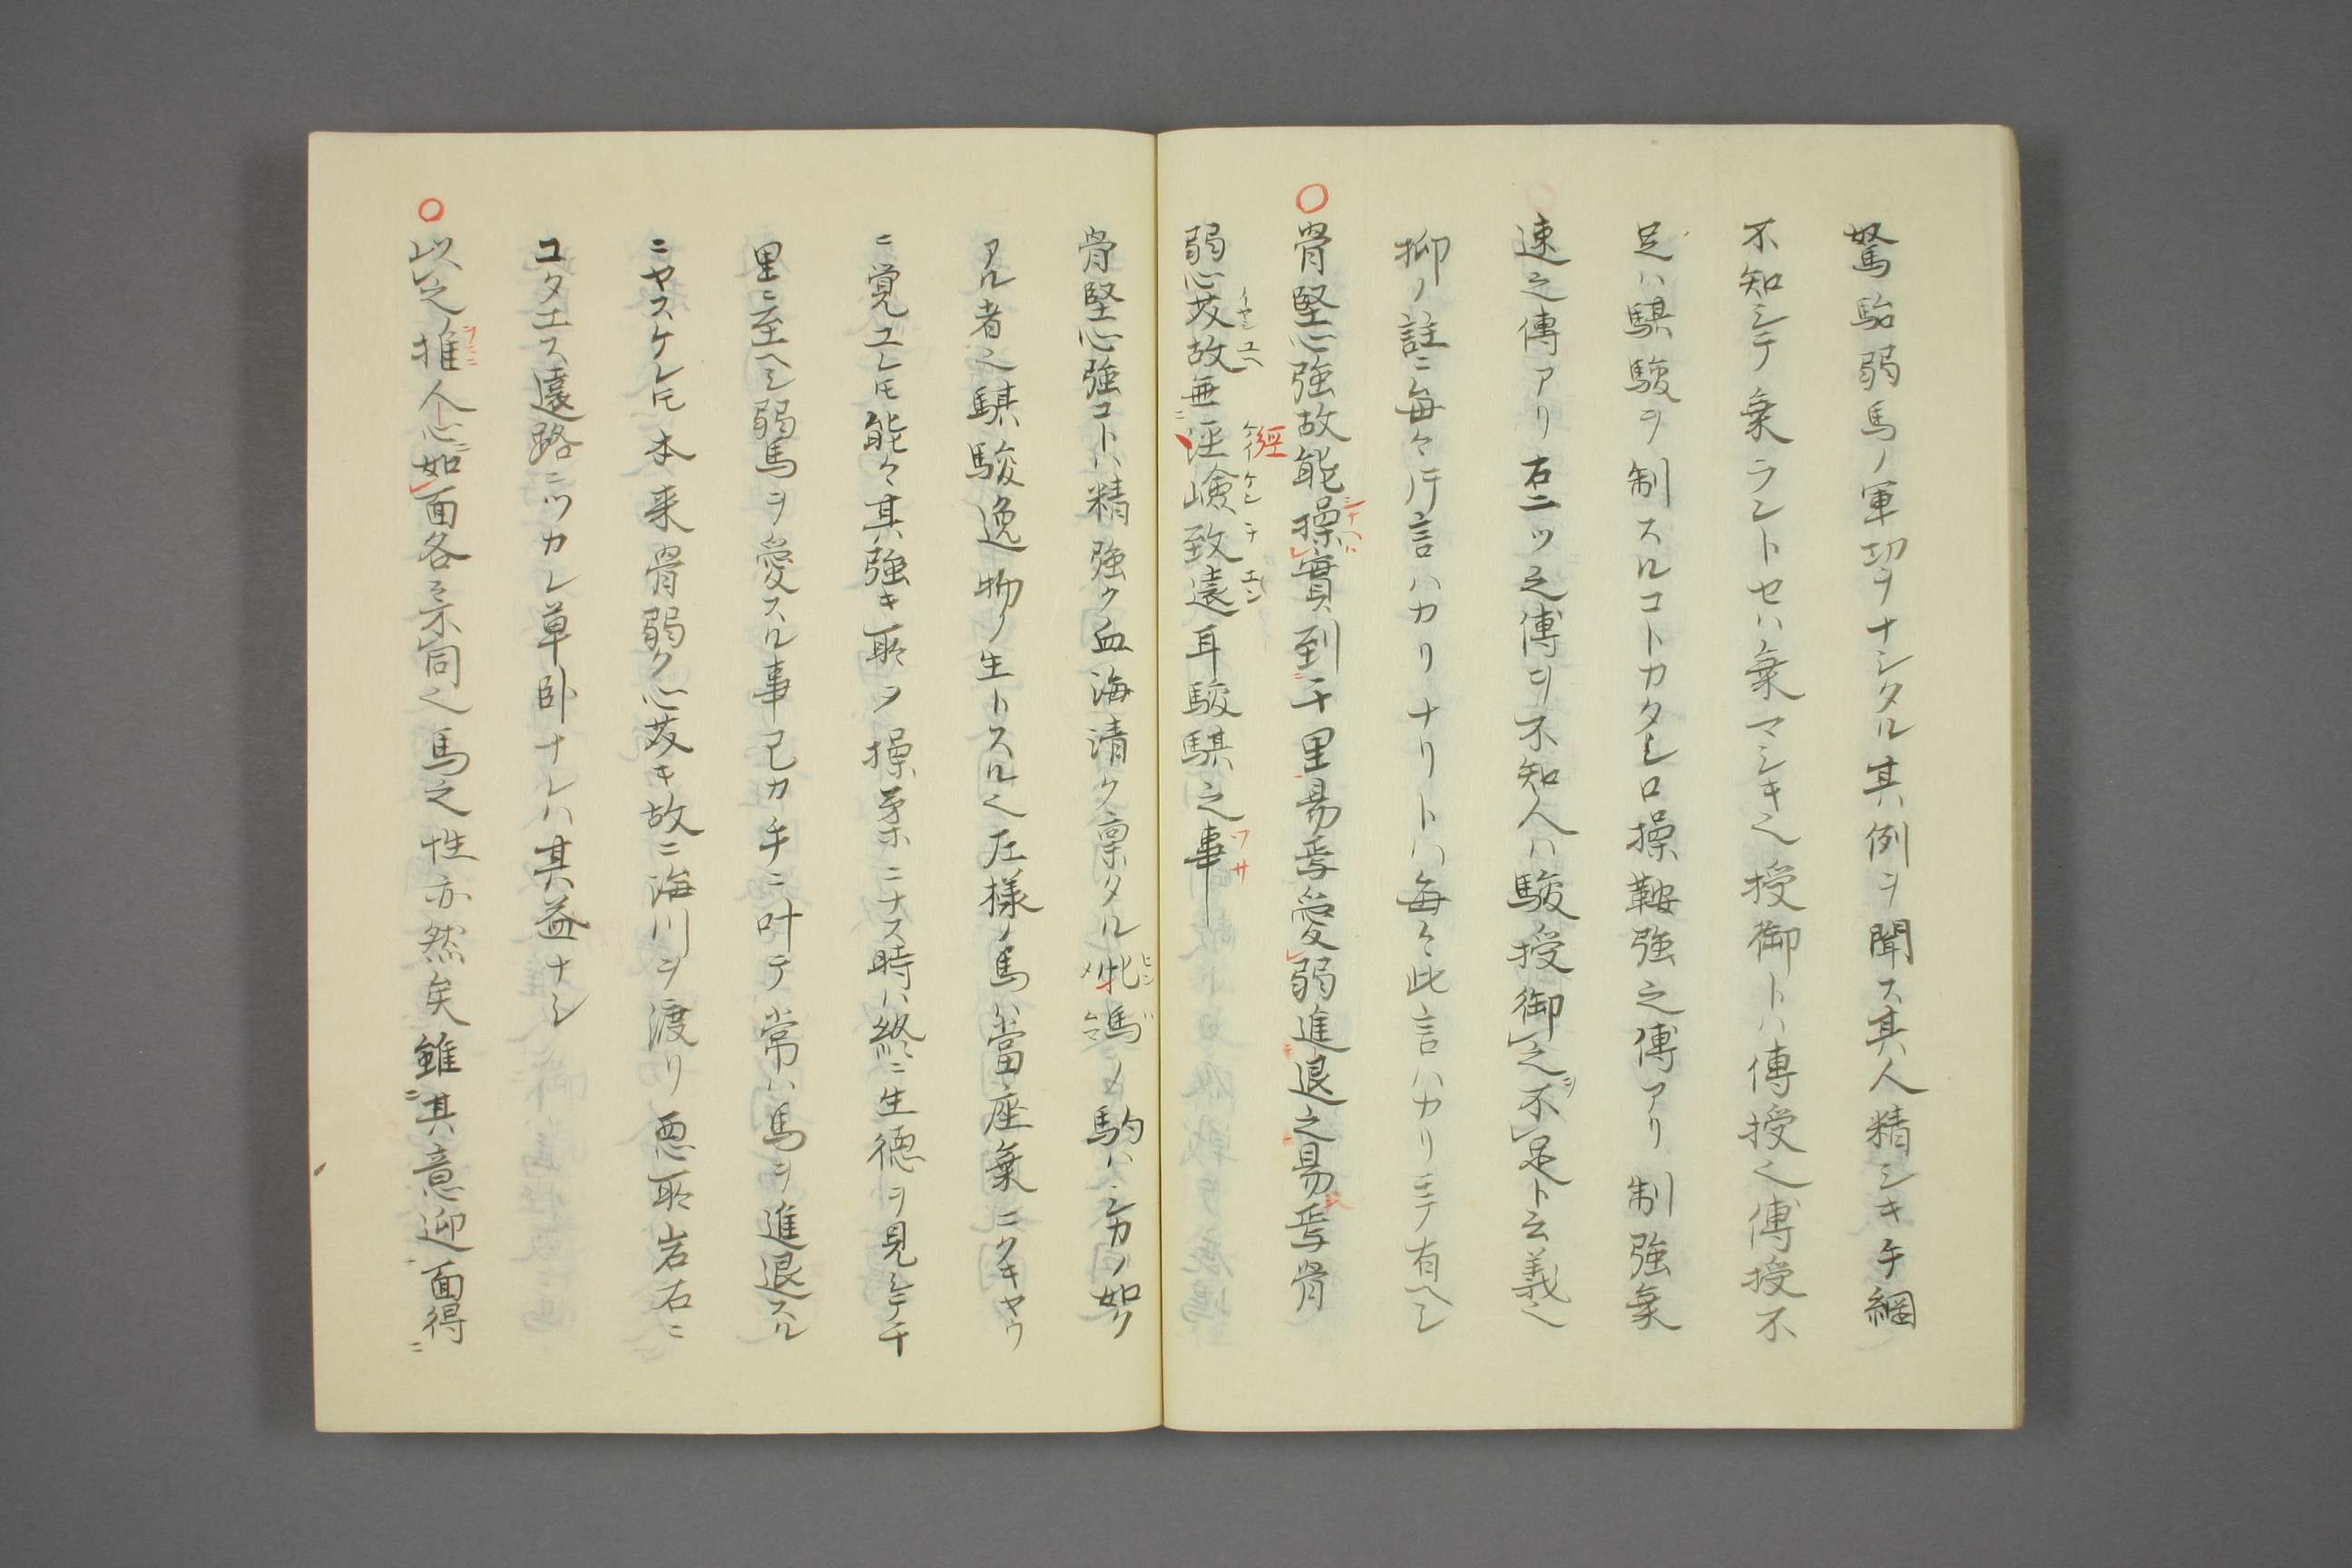 駑駘弱馬ノ軍切ヲナシタル其例ヲ聞ス其人精シキ手綱
不知シテ乗ラントセハ乗マシキ之授御トハ傳授之傳授不
足ハ騏駿ヲ制スルコトカタシロ操鞍強之傳アリ制強乗
速之傳アリ右二ツ之傳ヲ不知人ハ駿授御之不足ト云義之
抑ノ註ニ毎々斤言ハカリナリトハ毎々此言ハカリニテ有ヘシ
○骨堅心強故能操實到千里易焉愛弱進退之易焉骨
弱心茂故無逕嶮致遠耳駿騏之事
骨堅心強コトハ精強ク血海清ク稟タル牝馬ノ駒ハシカノ如ク
アル者之騏駿逸物ノ生トスル之左様ノ馬ハ當座乗ニクキヤウ
ニ覚ユレ𪜈能々其強キ取ヲ操業ニナス時ハ終ニ生徳ヲ見シテ千
里ニ至ヘシ弱馬ヲ愛スル事己カ手ニ叶テ常ハ馬ヲ進退スル
ニヤスケレ𪜈本来骨弱ク心茂キ故ニ海川ヲ渡リ悪取岩石ニ
コタエス遠路ニツカレ草臥ナレハ其益ナシ
○以之推人心如面各柔同之馬之性亦然矣雖其意迎面得